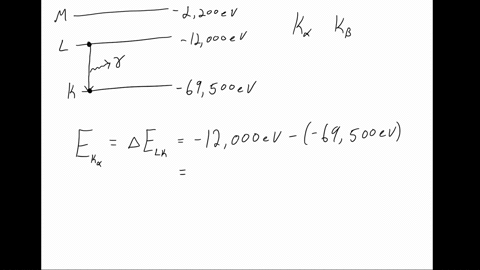 M -2,200eV
L -12,000eV
γ
K -69,500eV
K_α K_β
E_{K_α} = ΔE_{LK} = -12,000eV - (-69,500eV)
=